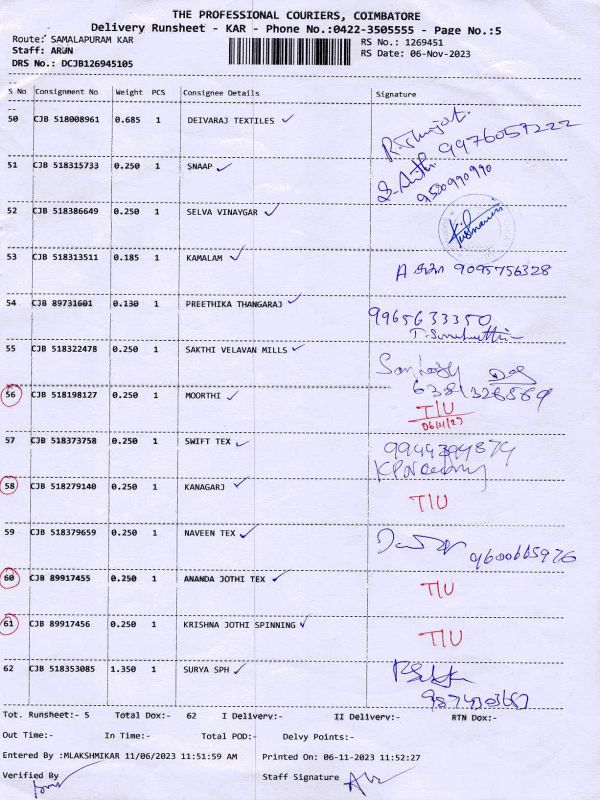 THE PROFESSIONAL COURIERS, COIMBATORE
Delivery Runsheet - KAR - Phone No.:0422-3505555 - Page No.:5
Route: SAMALAPURAM KAR RS No.: 1269451
Staff: ARUN RS Date: 06-Nov-2023
DRS No.: DCJB126945105
S No Consignment No Weight PCS Consignee Details Signature
50 CJB 518008961 0.685 1 DEIVARAJ TEXTILES ✓
9976057222
51 CJB 518315733 0.250 1 SNAAP ✓
9500990990
52 CJB 518386649 0.250 1 SELVA VINAYGAR ✓
53 CJB 518313511 0.185 1 KAMALAM ✓
9095756328
54 CJB 89731601 0.130 1 PREETHIKA THANGARAJ ✓
9965633350
55 CJB 518322478 0.250 1 SAKTHI VELAVAN MILLS ✓
6381328569
56 CJB 518198127 0.250 1 MOORTHI ✓ T/U
06/11/23
57 CJB 518373758 0.250 1 SWIFT TEX ✓ 9944394874
58 CJB 518279140 0.250 1 KANAGARJ ✓ T/U
59 CJB 518379659 0.250 1 NAVEEN TEX ✓
9600665976
60 CJB 89917455 0.250 1 ANANDA JOTHI TEX ✓ T/U
61 CJB 89917456 0.250 1 KRISHNA JOTHI SPINNING ✓ T/U
62 CJB 518353085 1.350 1 SURYA SPH ✓
Tot. Runsheet:- 5 Total Dox:- 62 I Delivery:- II Delivery:- RTN Dox:-
Out Time:- In Time:- Total POD:- Delvy Points:-
Entered By :MLAKSHMIKAR 11/06/2023 11:51:59 AM Printed On: 06-11-2023 11:52:27
Verified By Staff Signature